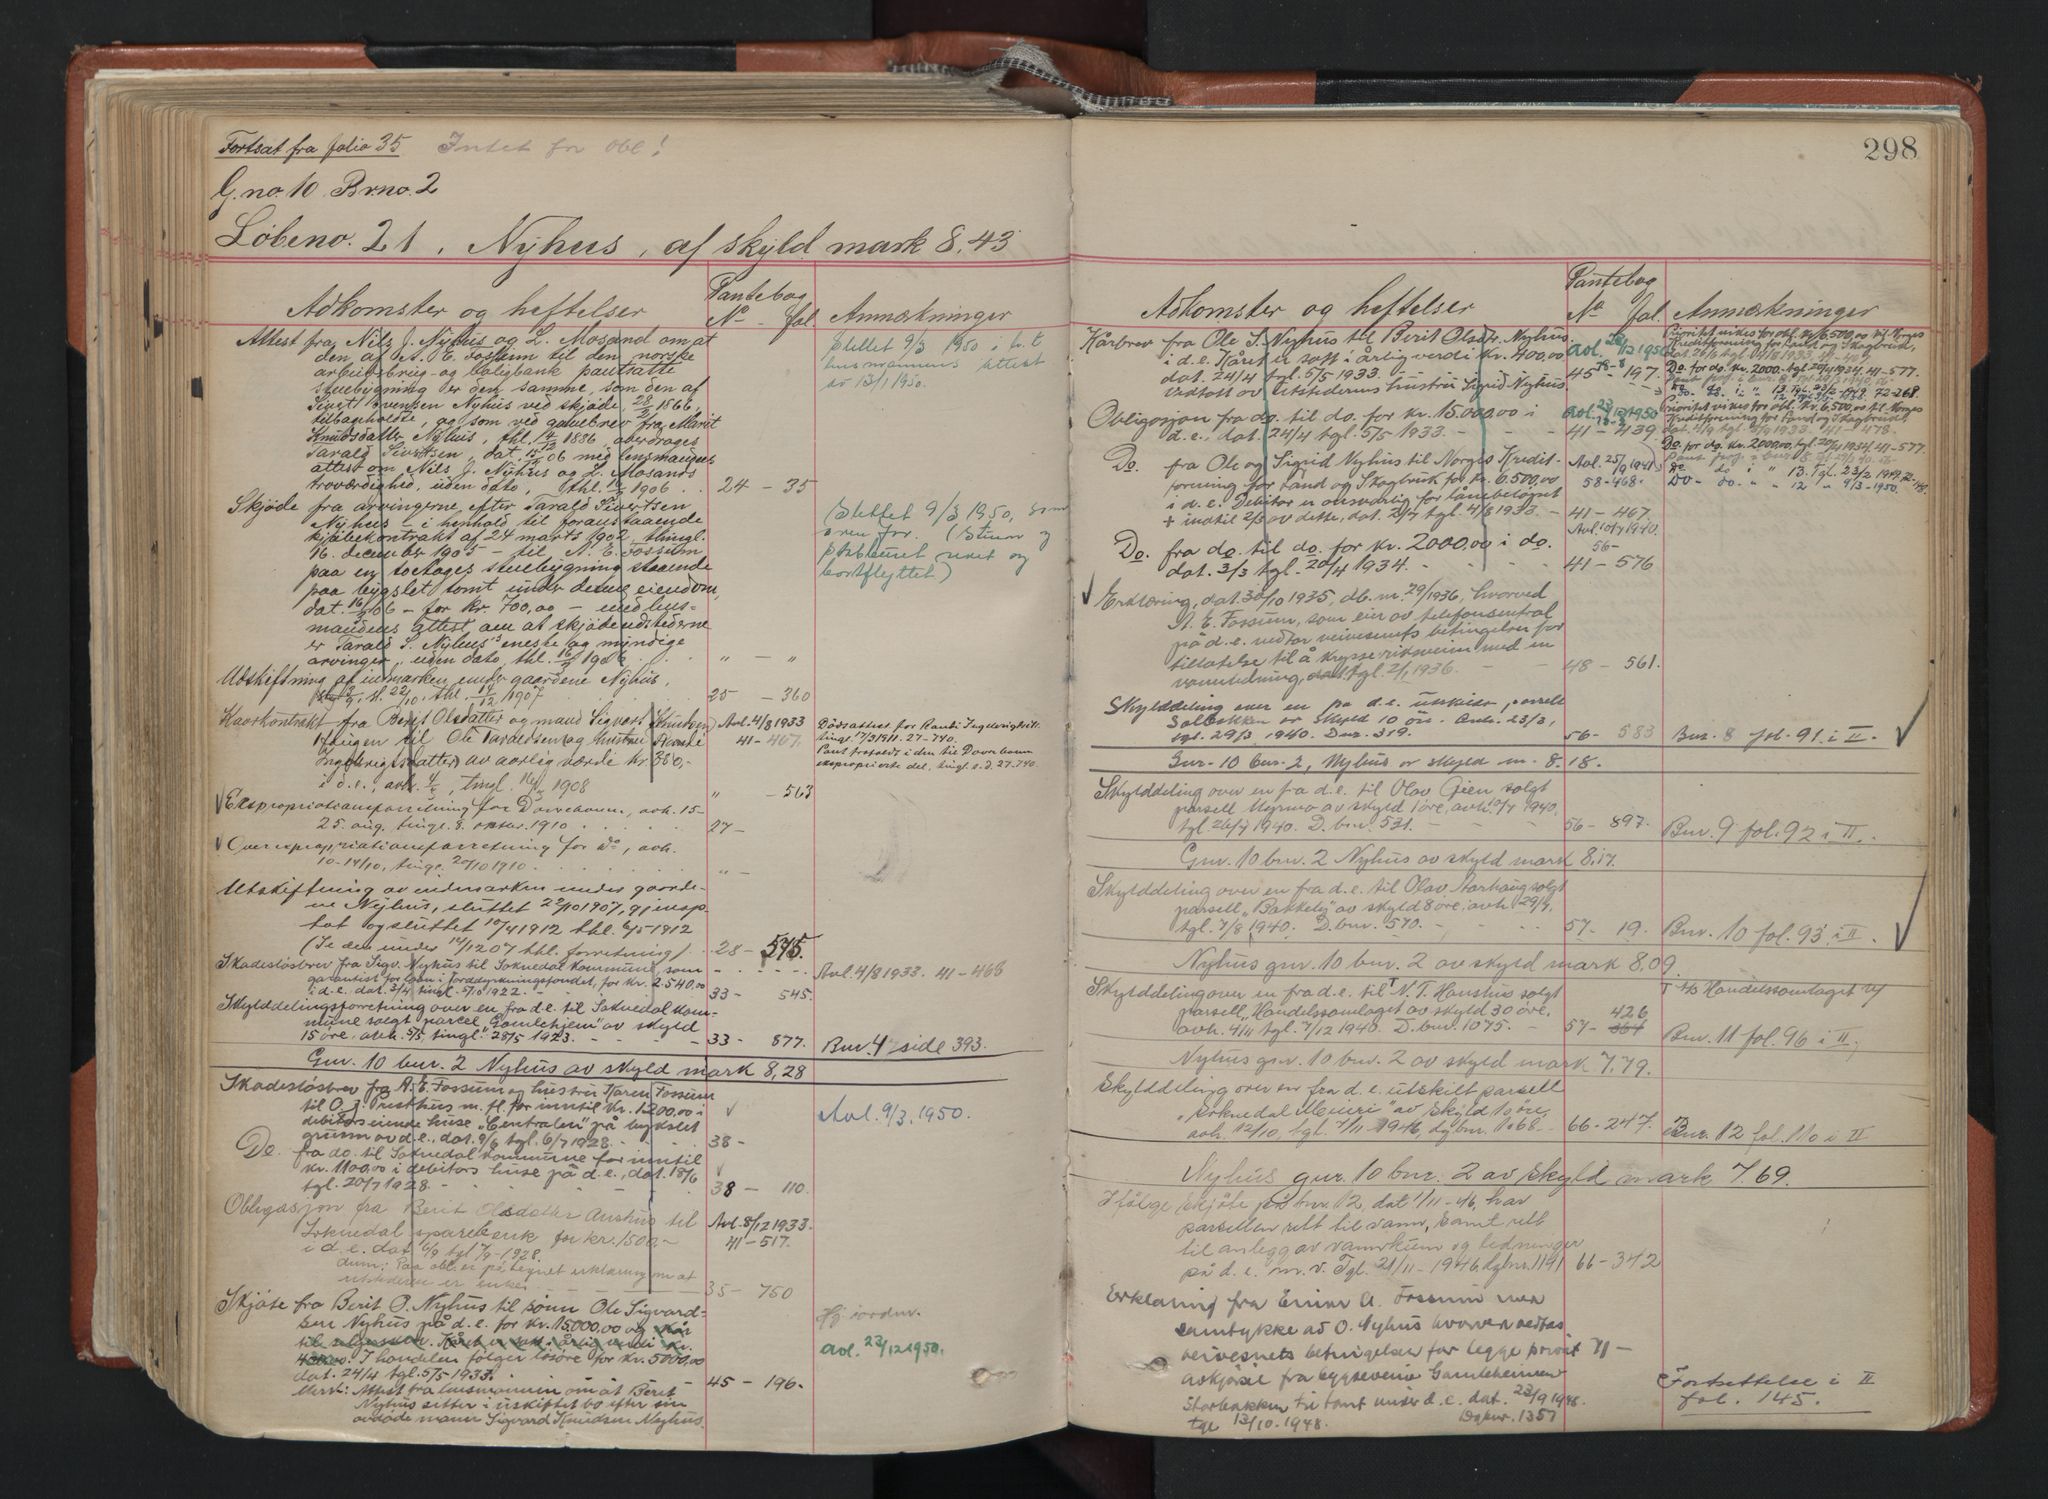 Fortsat fra folio 35 Intet for obl!
G.no. 10 Br.no. 2
Løbeno. 21, Nyhus, af skyld mark 8,43
Adkomster og heftelser
Pantebog
No - fol.
Anmærkninger
Attest fra Nils J. Nyhus og L. Mosand om at
den af A. E. Fossum til den norske
arbeiderbrug- og boligbank pantsatte
stuebygning er den samme, som den af
Sivert Evensen Nyhus ved skjøde, 1866,
tilbageholdt, og som ved gavebrev fra Marit
Knudsdatter Nyhus, thl. 1886, overdrages
Tarald Sivertsen, dat. 06 med lensmandens
attest om Nils J. Nyhus og L. Mosands
troværdighed, uden dato, thl. 1906
24 - 35
Slettet 9/3 1950 i h.t.
lensmannens attest
av 13/1 1950.
Skjøde fra arvingerne efter Tarald Sivertsen
Nyhus - i henhold til foranstaaende
kjøbekontrakt af 24 marts 1902, thingl.
16. december 1905 - til A. E. Fossum
paa en toetages stuebygning staaende
paa bygslet tomt under denne eiendom,
dat. 06 - for kr. 700,00 - med lens-
mandens attest om at skjødeudstederne
er Tarald S. Nyhus's eneste og myndige
arvinger, uden dato, thl. 1906
" - "
(Slettet 9/3 1950, som
ovenfor. (Stuen
revet og
bortflyttet)
Udskiftning af indmarken under gaardene Nyhus,
sl. 22/10, thl. 1907
25 - 360
Kaarkontrakt fra Berit Olsdatter og mand Sigvart Knutsen
Haugen til Ole Taraldsen og hustru Randi
Ingebrigtsdatter av aarlig værde kr. 380,-
i d.e., avh. 4/5, tingl. 1908
" - 563
Avl. 4/8 1933
41 - 467.
Dødsattest for Randi Ingebrigtsdt.
tingl. 17/3 1911. 27-740.
Pant frafaldt i den til Dovrebanen
eksproprierte del, tingl. s.d. 27-740.
Ekspropriationsforretning for Dovrebanen, avh. 15-
25. aug., tingl. 8. oktbr. 1910
27 -
Overexpropriationsforretning for Do, avh.
10-14/10, tingl. 20/10 1910.
" -
Utskiftning av indmarken under gaarde-
ne Nyhus, sluttet 22/10 1907, gjenop-
tat og sluttet 10/4 1912 thl. 6/5 1912
(Se den under 14/12 07 thl. forretning)
28 - 575.
Skadesløsbrev fra Sigv. Nyhus til Soknedal kommune, som
garantist for laan i Jorddyrkningsfondet, for kr. 2540,00
i d.e. dat. 3/4 tingl. 5/10 1922.
33 - 545.
Avl. 4/8 1933. 41 - 466
Skylddelingsforretning over en fra d.e. til Soknedal kom-
mune solgt parcel "Gamlehjem" av skyld
15 øre. avh. 5/5, tingl. 28/5 1923.
33 - 877.
Bnr. 4 side 393.
Gnr. 10 bnr. 2 Nyhus av skyld mark 8,28
Skadesløsbrev fra A. E. Fossum og hustru Karen Fossum
til O. J. Presthus m. fl. for inntil kr. 1200,00 i
debitors eiende huse "Centralen" på bykslet
grunn av d.e., dat. 9/6 tgl. 6/7 1928.
38 -
Avl. 9/3. 1950.
Do. fra do. til Soknedal kommune for inntil
kr. 1100,00 i debitors huse på d.e., dat. 18/6
tgl. 20/7 1928.
38 - 110.
Obligasjon fra Berit Olsdatter Nyhus til
Soknedal sparebank for kr. 1500.-
i d.e. dat. 6/9 tgl 7/9-1928.
Anm: Paa obl. er påtegnet erklæring om at
utstederen er enke.
35 - 750
Avl. 8/12 1933.
41 - 517.
Skjøte fra Berit O. Nyhus til sønn Ole Sigvard-
sen Nyhus på d.e. for kr. 15000,00 og kår
til selgersken. Kåret er satt i årlig verdi kr.
400,00. I handelen følger løsøre for kr. 5000,00
dat. 24/4 tgl. 5/5 1933.
45 - 196.
Hj. jordnr.
avl. 23/12 1950.
Merk: Attest fra lensmannen om at Berit
Nyhus sitter i uskiftet bo efter sin
avdøde mann Sigvard Knudsen Nyhus.
298
Adkomster og heftelser
Pantebog
No fol.
Anmærkninger
Kårbrev fra Ole S. Nyhus til Berit Olsdtr. Nyhus
i d.e. Kåret er satt i årlig verdi kr. 400,00
dat. 24/4 tgl. 5/5 1933.
Vedtatt av utstederens hustru Sigrid Nyhus
45 - 197.
Avl. 23/12 1950
78-8
Prioritet vikes for obl. kr. 6.500,00 til Norges
Kreditforening for Land og Skogbruk,
dat. 26/6 tgl. 4/8 1933. 41-467
Do. for do. kr. 2000. tgl. 20/4 1934. 41-577.
Obligasjon fra do. til do. for kr. 15.000,00 i
d.e., dat. 24/4 tgl. 5/5 1933.
41 - 439
Avl. 23/12 1950
Prioritet vikes for obl. kr. 6.500,00 til Norges
Kreditforening for Land og Skogbruk,
Do for do. kr. 2000,00, tgl. 20/4 1934. 41-577.
Do. fra Ole og Sigrid Nyhus til Norges Kredit-
forening for Land og Skogbruk for kr. 6.500,00
i d.e. Debitor er ansvarlig for lånebeløpet
+ inntil 2/3 av dette, dat. 2/7 tgl. 4/8 1933.
41 - 467.
Avl. 25/9 1941
58-468.
Do. fra do. til do. for kr. 2000,00 i do.
dat. 3/3 tgl. 20/4 1934.
41 - 576
Avl. 10/7 1940.
56-
Erklæring, dat. 30/10 1935, db. nr. 29/1936, hvorved
A. E. Fossum, som eier av telefonsentral
på d.e. vedtar veivesenets betingelser for
tillatelse til å krysse riksveien med en
vannledning, tgl. 2/1 1936.
48 - 561.
Skylddeling over en på d.e. utskilt parsell
Solbakken av skyld 10 øre. avh. 23/3,
tgl. 29/3 1940. Dnr. 319.
56 - 583
Bnr. 8 fol. 91 i II.
Gnr. 10 bnr. 2, Nyhus av skyld m. 8.18.
Skylddeling over en fra d.e. til Olav Gien solgt
parsell Myrmo av skyld 1 øre, avh. 10/7 1940,
tgl. 26/7 1940. D.bnr. 531.
56 - 897.
Bnr. 9 fol. 92 i II.
Gnr. 10 bnr. 2 Nyhus av skyld mark 8,17.
Skylddeling over en fra d.e. til Olav Aarhaug solgt
parsell "Bakkely" av skyld 8 øre. avh. 29/7,
tgl. 7/8 1940. D.bnr. 570.
57 - 19.
Bnr. 10 fol. 93 i II.
Nyhus gnr. 10 bnr. 2 av skyld mark 8,09.
Skylddeling over en fra d.e. til N. T. Hanshus solgt
parsell "Handelssamlaget" av skyld 30 øre,
avh. 4/11 tgl. 7/12 1940. D.bnr. 1075.
57 - 364
426
T Handelssamlaget
Bnr. 11 fol. 96 i II,
Nyhus gnr. 10 bnr. 2 av skyld mark 7.79.
Skylddeling over en fra d.e. utskilt parsell
"Soknedal Meieri" av skyld 10 øre,
avh. 12/10, tgl. 7/11 1946, dgbnr. 1068.
66 - 247.
Bnr. 12 fol. 110 i II
Nyhus gnr. 10 bnr. 2 av skyld mark 7.69.
Ifølge skjøte på bnr. 12, dat 1/11-46, har
parsellen rett til vann, samt rett
til anlegg av vannkum og ledninger
på d.e. m.v. Tgl. 21/11-1946 dgbnr. 1191
66 - 342
Erklæring fra Einar A. Fossum med
samtykke av O. Nyhus hvorved vedtas
veivesenets betingelser for legge privat
avkjørsel fra bygdeveien Gamlehjemmet
Storbakken til tomt under d.e. dat. 23/9 1948.
tgl 13/10. 1948. Dgbnr. 1357
71 -
Fortsettelse i II
fol. 145.